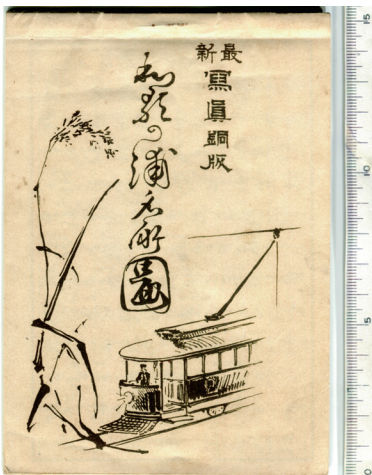 最新
寫眞銅版
和歌の浦名所圖
15
10
5
0